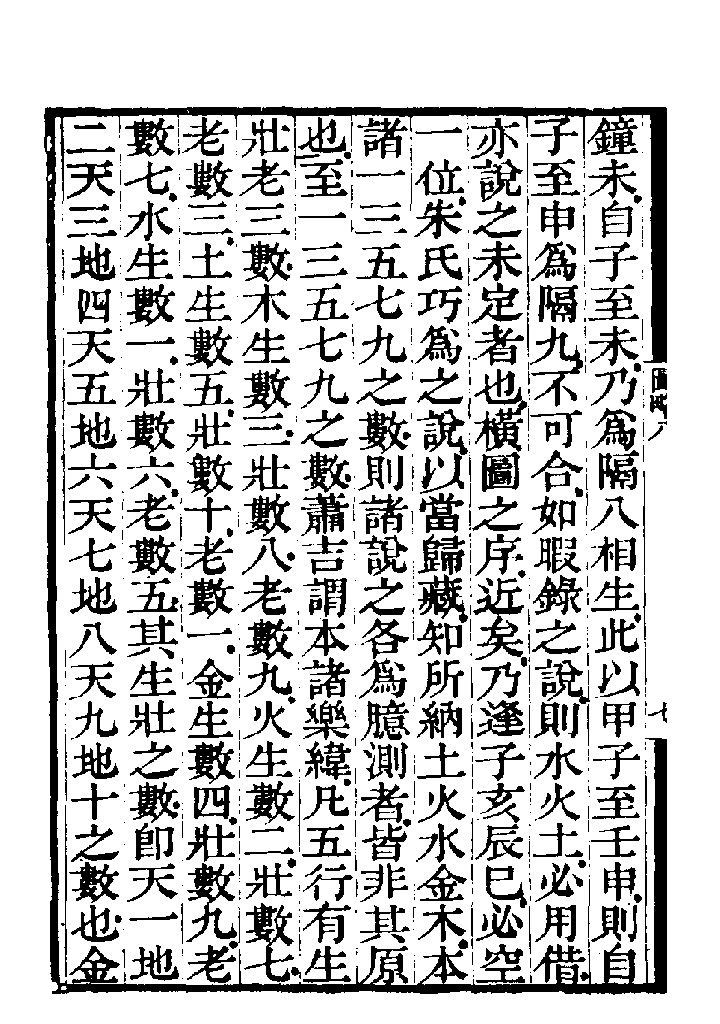 鐘未自子至未乃爲隔八相生此以甲子至壬申則自
子至申爲隔九不可合如暇錄之說則水火土必用借
亦說之未定者也橫圖之序近矣乃逢子亥辰巳必空
一位朱氏巧爲之說以當歸藏知所納土火水金木本
諸一三五七九之數則諸說之各爲臆測者皆非其原
也至一三五七九之數蕭吉謂本諸樂緯凡五行有生
壯老三數木生數三壯數八老數九火生數二壯數七
老數三土生數五壯數十老數一金生數四壯數九老
數七水生數一壯數六老數五其生壯之數卽天一地
二天三地四天五地六天七地八天九地十之數也金
圖略八
七